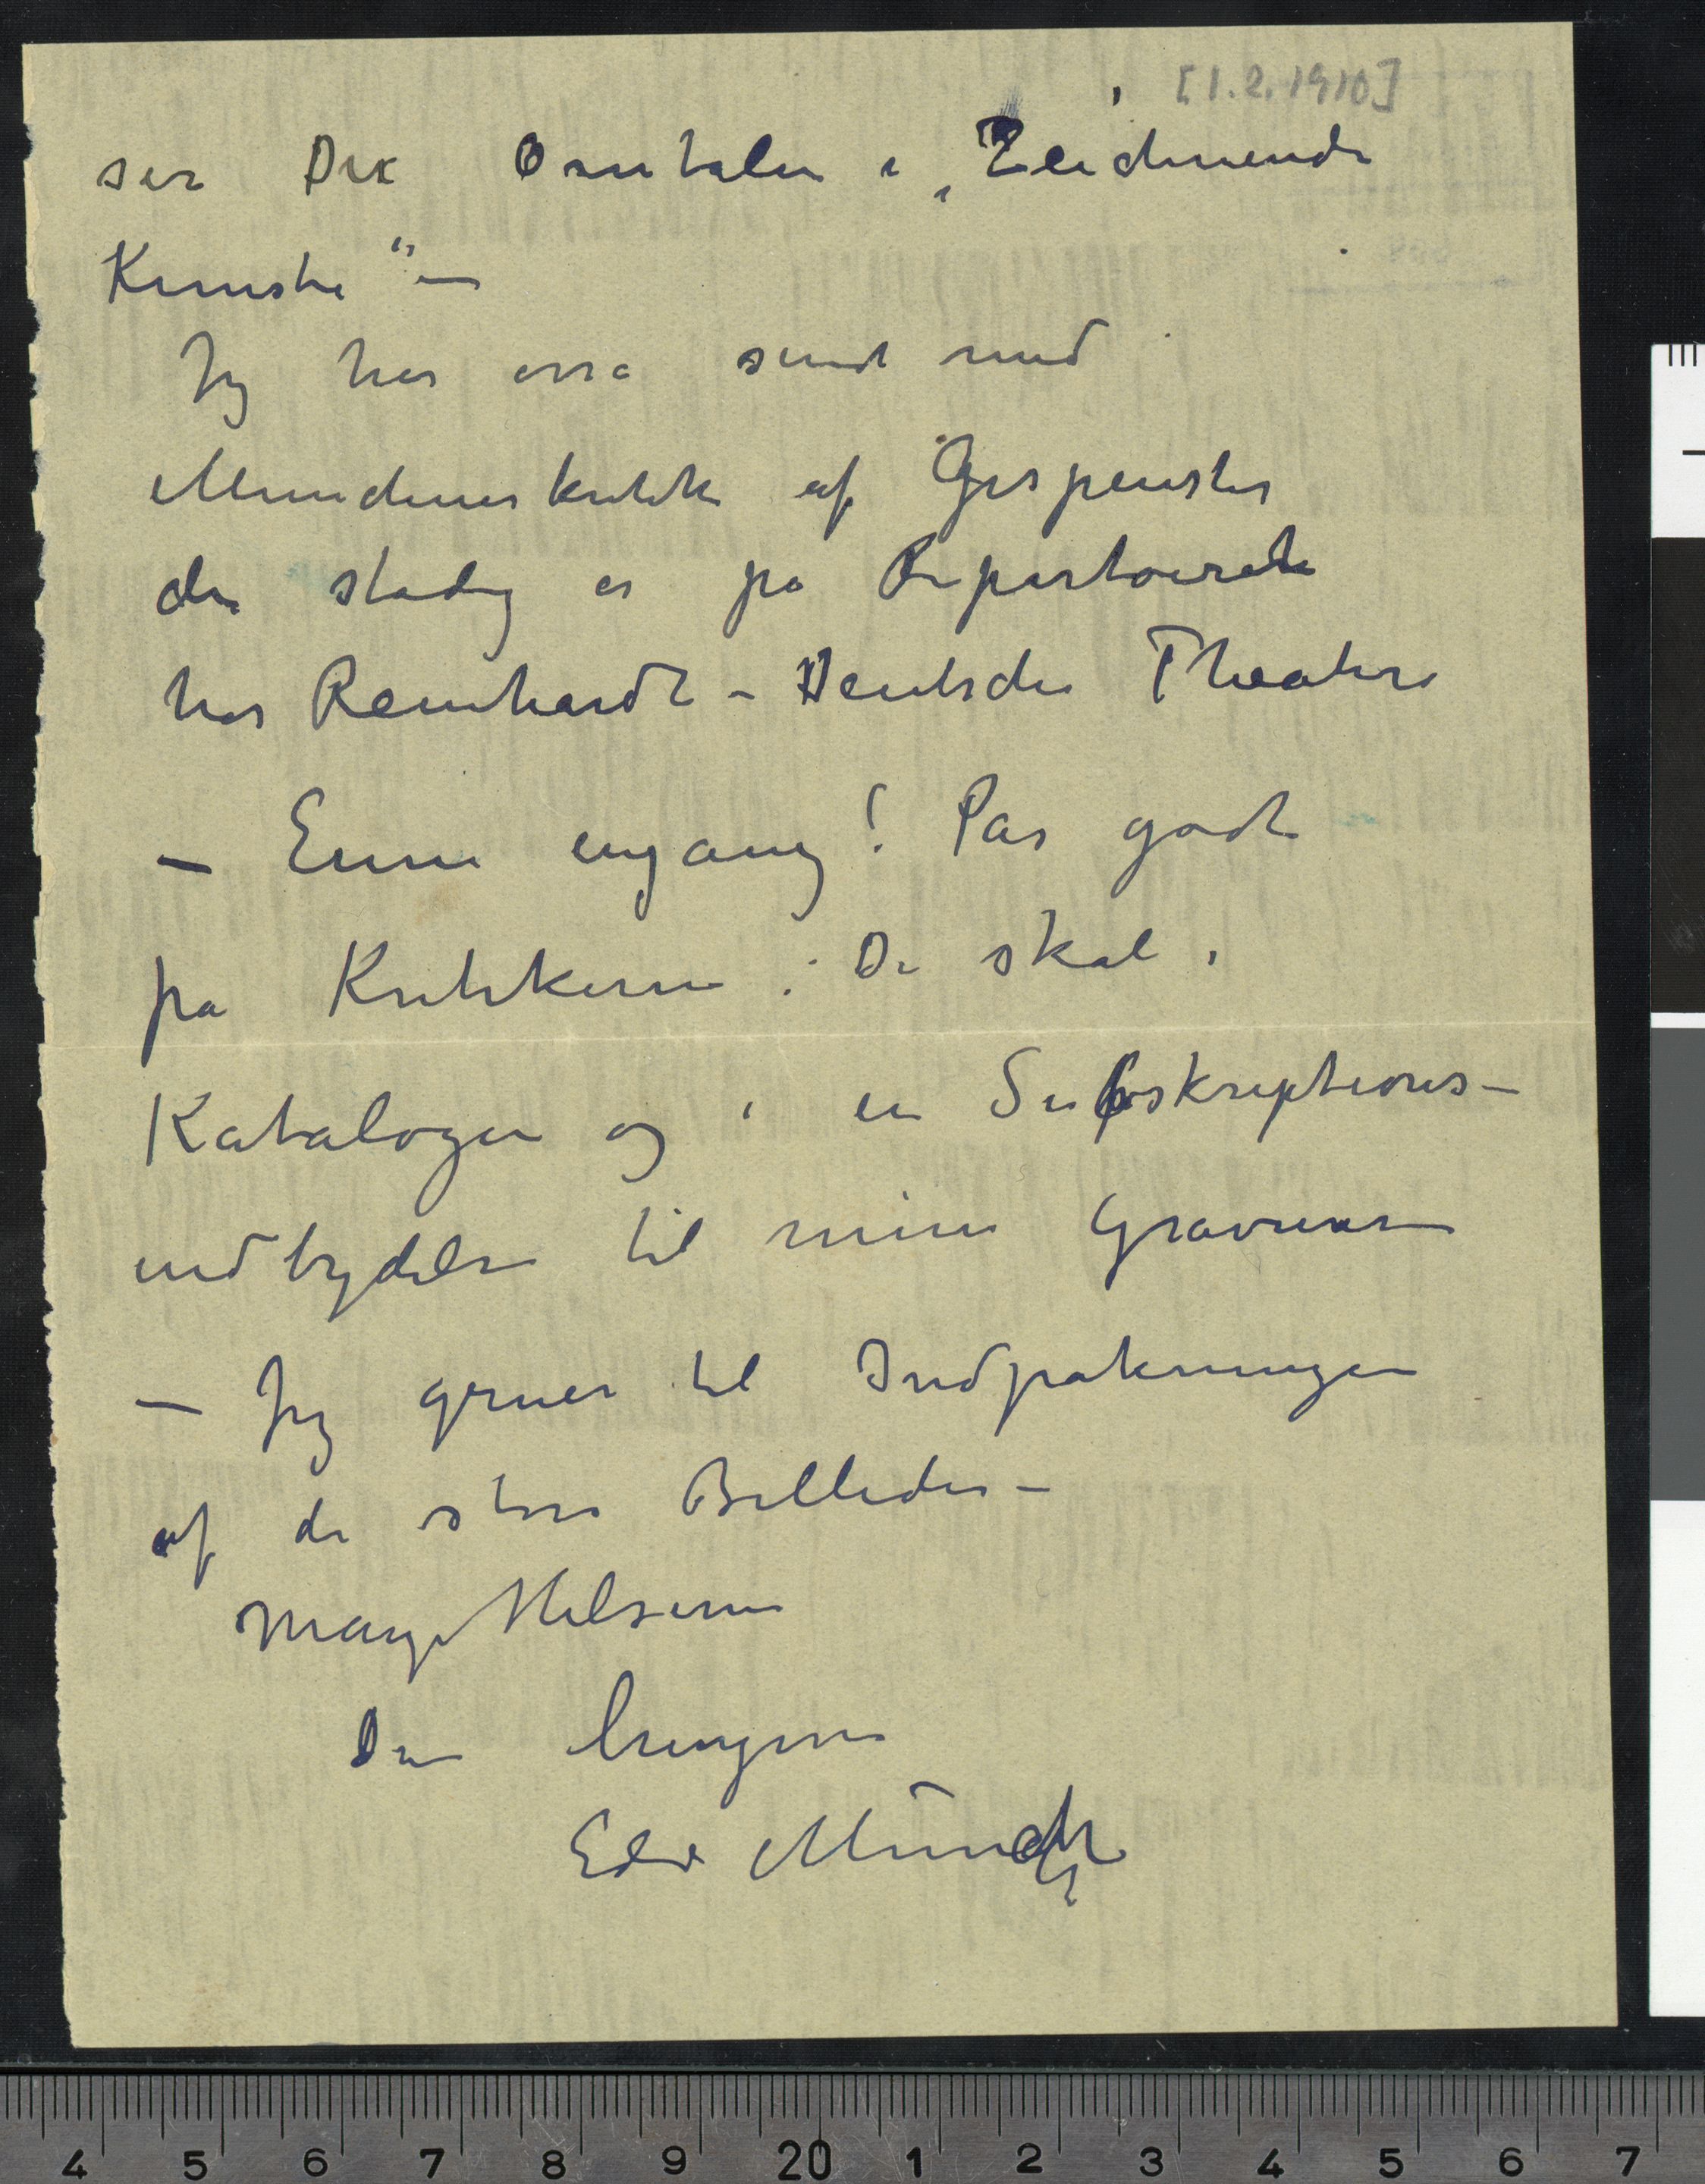 [1.2.1910]
ser De Omtalen i „Zeichnende
Kunste" –
Jeg har osså sendt med
Münchenerkritik af Gespenster
der stadig er på Repertoiret
hos Reinhardt – Deutsche Theater
– Ennu engang! Pas godt
på Kritikerne: De skal i
Katalogen og i en Subskriptions–
indbydelse til mine Gravurer
– Jeg gruer til Indpakningen
af de store Billeder –
Mange Hilsener
Din hengivne
Edv Munch
4 5 6 7 8 9 20 1 2 3 4 5 6 7